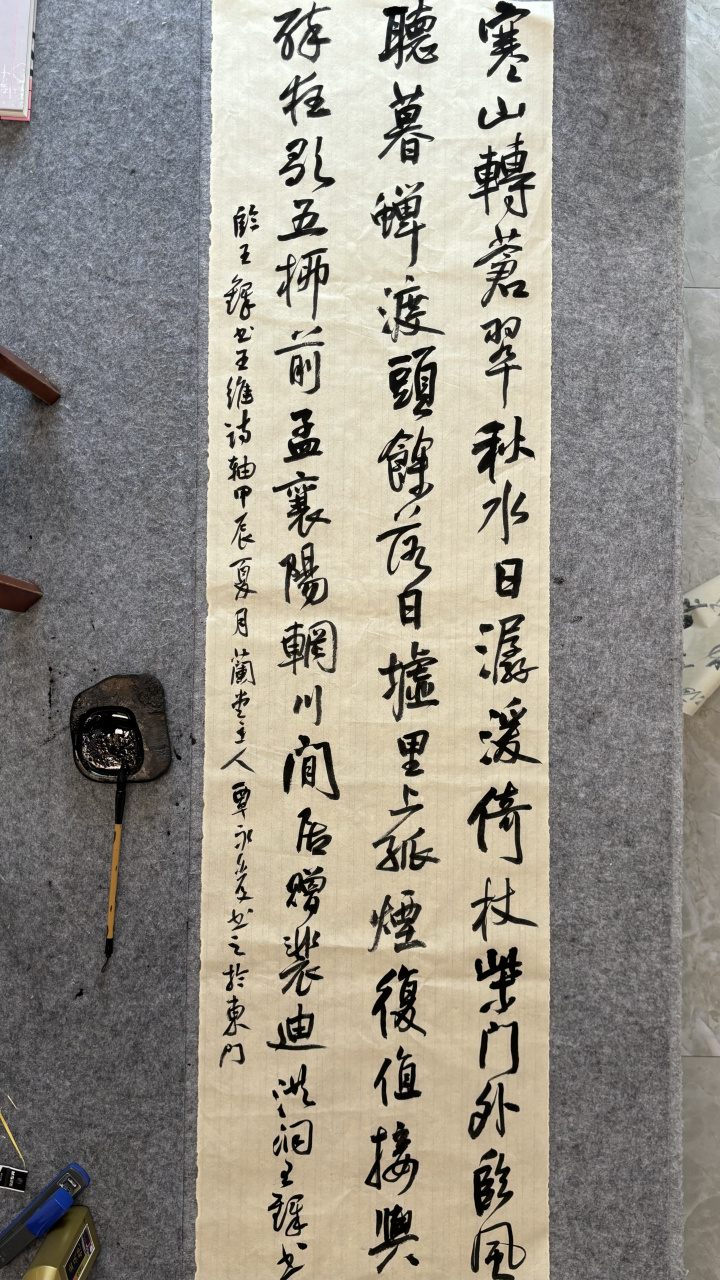 寒山轉蒼翠秋水日潺湲倚杖柴門外臨風
聽暮蟬渡頭餘落日墟里上孤煙復值接輿
醉狂歌五柳前孟襄陽輞川閒居贈裴迪洪洞王鐸書
臨王鐸書王維詩軸甲辰夏月蘭堂主人覃永書之於東門